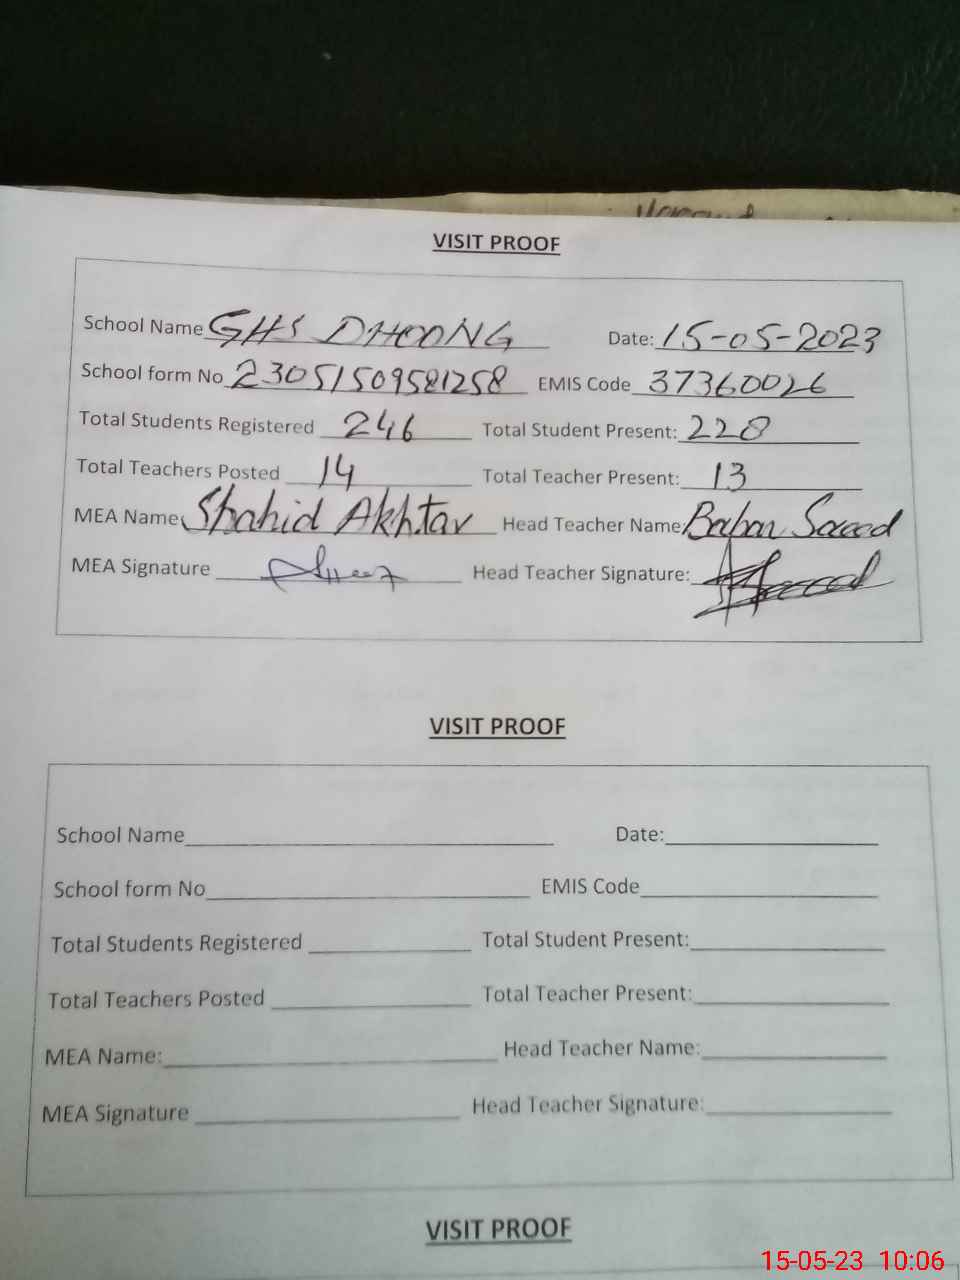 VISIT PROOF
School Name GHS DHOONG Date: 15-05-2023
School form No 23051509581258 EMIS Code 37360026
Total Students Registered 246 Total Student Present: 228
Total Teachers Posted 14 Total Teacher Present: 13
MEA Name Shahid Akhtar Head Teacher Name: Babar Saeed
MEA Signature Head Teacher Signature:
VISIT PROOF
School Name Date:
School form No EMIS Code
Total Students Registered Total Student Present:
Total Teachers Posted Total Teacher Present:
MEA Name: Head Teacher Name:
MEA Signature Head Teacher Signature:
VISIT PROOF
15-05-23 10:06